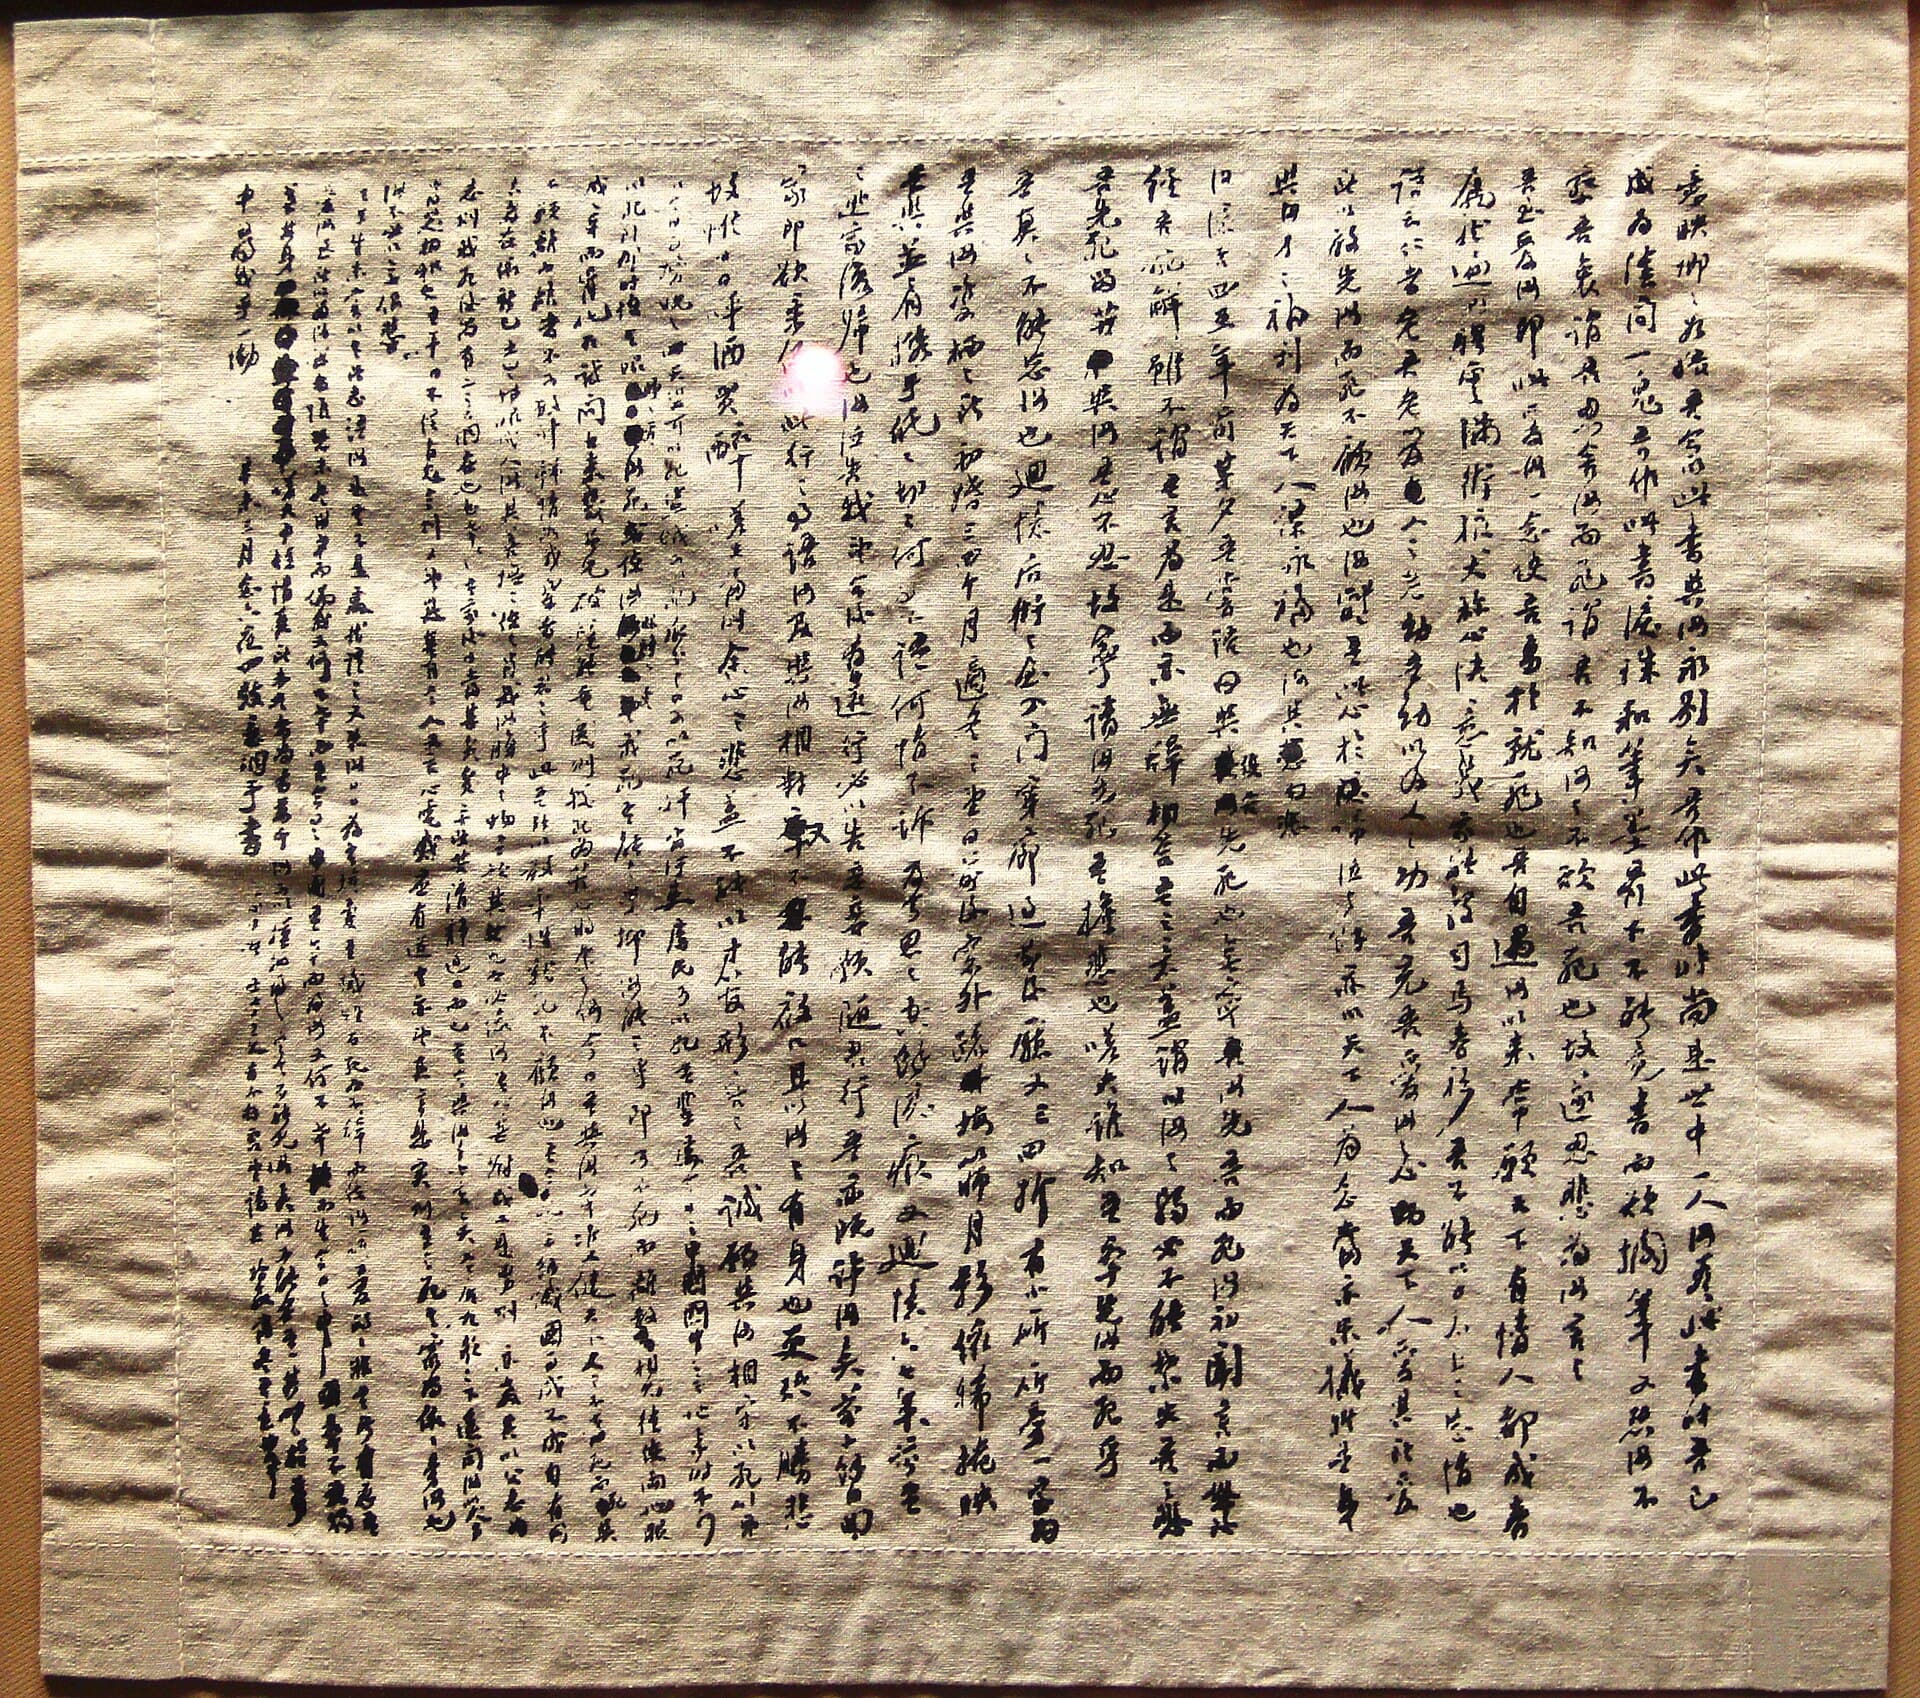 意映卿卿如晤吾今以此書與汝永別矣吾作此書時尚是世中一人汝看此書時吾已
成為陰間一鬼吾作此書淚珠和筆墨齊下不能竟書而欲擱筆又恐汝不
察吾衷謂吾忍舍汝而死謂吾不知汝之不欲吾死也故遂忍悲為汝言之
吾至愛汝即此愛汝一念使吾勇於就死也吾自遇汝以來常願天下有情人都成眷
屬然遍地腥雲滿街狼犬稱心快意幾家能彀司馬春衫吾不能學太上之忘情也
語云仁者老吾老以及人之老幼吾幼以及人之幼吾充吾愛汝之心助天下人愛其所愛
所以敢先汝而死不顧汝也汝體吾此心於啼泣之餘亦以天下人為念當亦樂犧牲吾身
與汝身之福利為天下人謀永福也汝其勿悲
汝憶否四五年前某夕吾嘗語曰與使吾先死也無寧汝先吾而死汝初聞言而怒後
經吾婉解雖不謂吾言為是而亦無辭相答吾之意蓋謂以汝之弱必不能禁失吾之悲
吾先死留苦與汝吾心不忍故寧請汝先死吾擔悲也嗟夫誰知吾卒先汝而死乎
吾真真不能忘汝也迴憶后街之屋入門穿廊過前後廳又三四折有小廳廳旁一室為
吾與汝雙棲之所初婚三四個月適冬之望日前後窗外疏梅篩月影依稀掩映
吾與並肩攜手低低切切何事不語何情不訴及今思之空餘淚痕又迴憶六七年前吾
之逃家復歸也汝泣告我望今後有遠行必以告妾妾願隨君行吾亦既許汝矣前十餘日回
家即欲乘便以此行之事語汝及與汝相對又不能啟口且以汝之有身也更恐不勝悲
故惟日日呼酒買醉嗟夫當時余心之悲蓋不能以寸管形容之吾誠願與汝相守以死第以
今日事勢觀之天災可以死盜賊可以死瓜分之日可以死奸官污吏虐民可以死吾輩處今日之中國國中無地無時不可
以死到那時使吾眼睜睜看汝死或使汝眼睜睜看我死吾能之乎抑汝能之乎即可不死而離散不相見徒使兩地眼
成穿而骨化石試問古來幾曾見破鏡能重圓則較死為苦也將奈之何今日吾與汝幸雙健天下人人不當死而死與
不願離而離者不可數計鍾情如我輩者能忍之乎此吾所以敢率性就死不顧汝也吾今死無餘憾國事成不成自有同
志者在依新已五歲轉眼成人汝其善撫之使之肖我汝腹中之物吾疑其女也女必像汝吾心甚慰或又是男則亦教其以父志為
志則我死後尚有二意洞在也甚幸甚幸吾家後日當甚貧貧無所苦清靜過日而已吾今與汝無言矣吾居九泉之下遙聞汝哭聲
當哭相和也吾平日不信有鬼今則又望其真有今人又言心電感應有道吾亦望其言是實則吾之死吾靈尚依依旁汝也
汝不必以無侶悲
吾平生未嘗以吾所志語汝是吾不是處然語之又恐汝日日為吾擔憂吾犧牲百死而不辭而使汝擔憂的的非吾所忍吾愛汝
辛未三月念六夜四鼓意洞手書